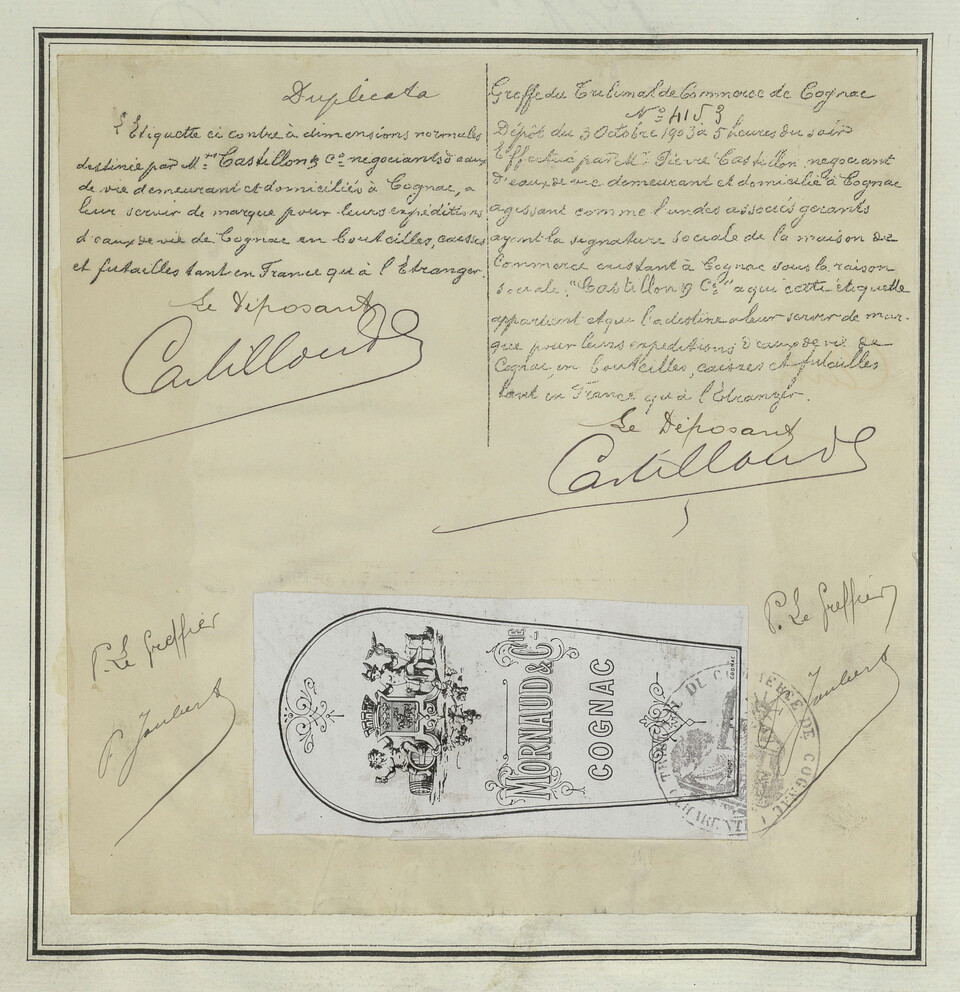 Duplicata
L'Etiquette ci contre à dimensions normales
destinée par M.rs Castillon & Co negociants d'eaux
de vie demeurant et domiciliés à Cognac, a
leur servir de marque pour leurs expéditions
d'eaux de vie de Cognac en bouteilles, caisses
et futailles tant en France qu'à l'Etranger.
Le Déposant
Castillon & Co
Greffe du Tribunal de Commerce de Cognac
No 4153
Dépôt du 3 Octobre 1903 à 5 heures du soir
Effectué par M. Pierre Castillon, negociant
d'eaux de vie demeurant et domicilié à Cognac
agissant comme l'un des associés gerants
ayant la signature sociale de la maison de
Commerce existant à Cognac sous la raison
sociale, "Castillon & Co" a qui cette étiquette
appartient et qui l'a destine a leur servir de mar-
que pour leurs expeditions d'eaux de vie de
Cognac, en bouteilles, caisses et futailles
tant en France qu'à l'Etranger.
Le Déposant
Castillon & Co
P. Le Greffier
P. Joubert
MORNAUD & CIE
COGNAC
COGNAC
TRIBUNAL DU COMMERCE DE COGNAC
CHARENTE
P. Le Greffier
Joubert